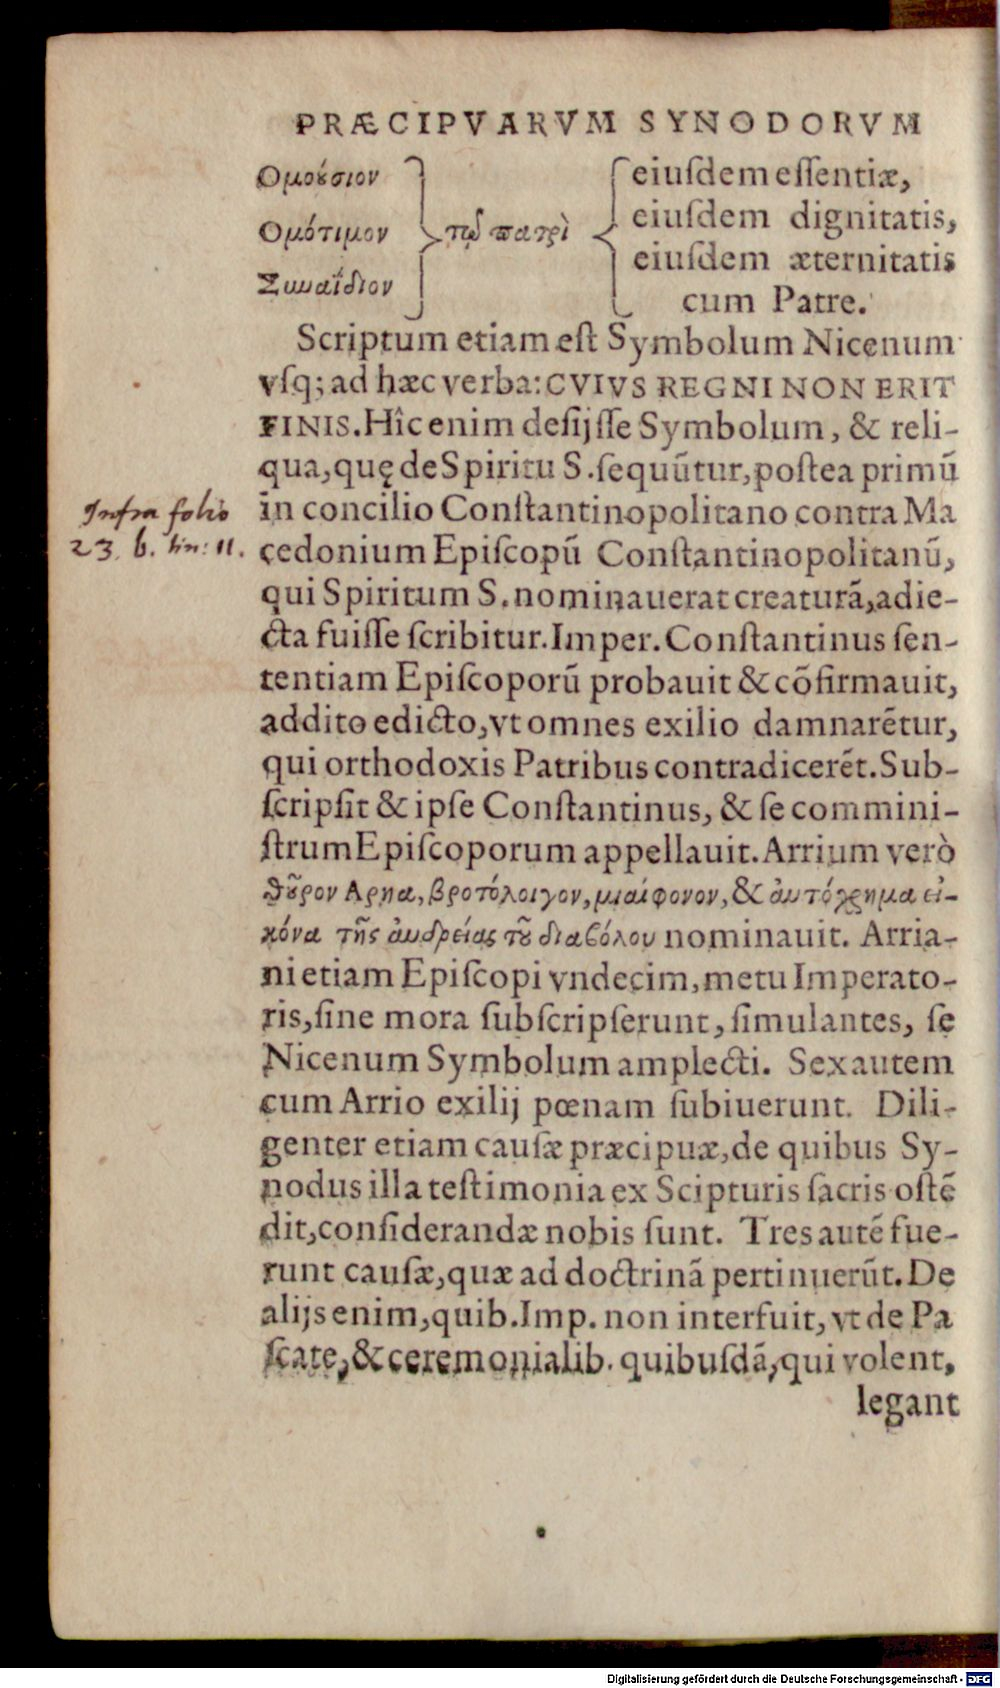 PRÆCIPVARVM SYNODORVM
Ομούσιον } τῷ πατρὶ { eiuſdem eſſentiæ,
Ομότιμον eiuſdem dignitatis,
Συναΐδιον eiuſdem æternitatis
cum Patre.
Scriptum etiam eſt Symbolum Nicenum
vſq; ad hæc verba: CVIVS REGNI NON ERIT
FINIS. Hîc enim deſijſſe Symbolum, & reli-
qua, quę de Spiritu S. ſequũtur, poſtea primũ
in concilio Conſtantinopolitano contra Ma
cedonium Epiſcopũ Conſtantinopolitanũ,
qui Spiritum S. nominauerat creaturã, adie-
cta fuiſſe ſcribitur. Imper. Conſtantinus ſen-
tentiam Epiſcoporũ probauit & cõfirmauit,
addito edicto, vt omnes exilio damnarẽtur,
qui orthodoxis Patribus contradicerẽt. Sub-
ſcripſit & ipſe Conſtantinus, & ſe commini-
ſtrum Epiſcoporum appellauit. Arrium verò
θοῦρον Αρηα, βροτόλοιγον, μιαίφονον, & ἀυτόχρημα εἰ-
κόνα τῆς ἀνδρείας τοῦ διαβόλου nominauit. Arria-
ni etiam Epiſcopi vndecim, metu Imperato-
ris, ſine mora ſubſcripſerunt, ſimulantes, ſe
Nicenum Symbolum amplecti. Sex autem
cum Arrio exilij pœnam ſubiuerunt. Dili-
genter etiam cauſæ præcipuæ, de quibus Sy-
nodus illa teſtimonia ex Scipturis ſacris oſtẽ
dit, conſiderandæ nobis ſunt. Tres autẽ fue-
runt cauſæ, quæ ad doctrinã pertinuerũt. De
alijs enim, quib. Imp. non interfuit, vt de Pa
ſcate, & ceremonialib. quibuſdã, qui volent,
legant
Infra folio
23. b. lin: 11.
Digitalisierung gefördert durch die Deutsche Forschungsgemeinschaft - DFG